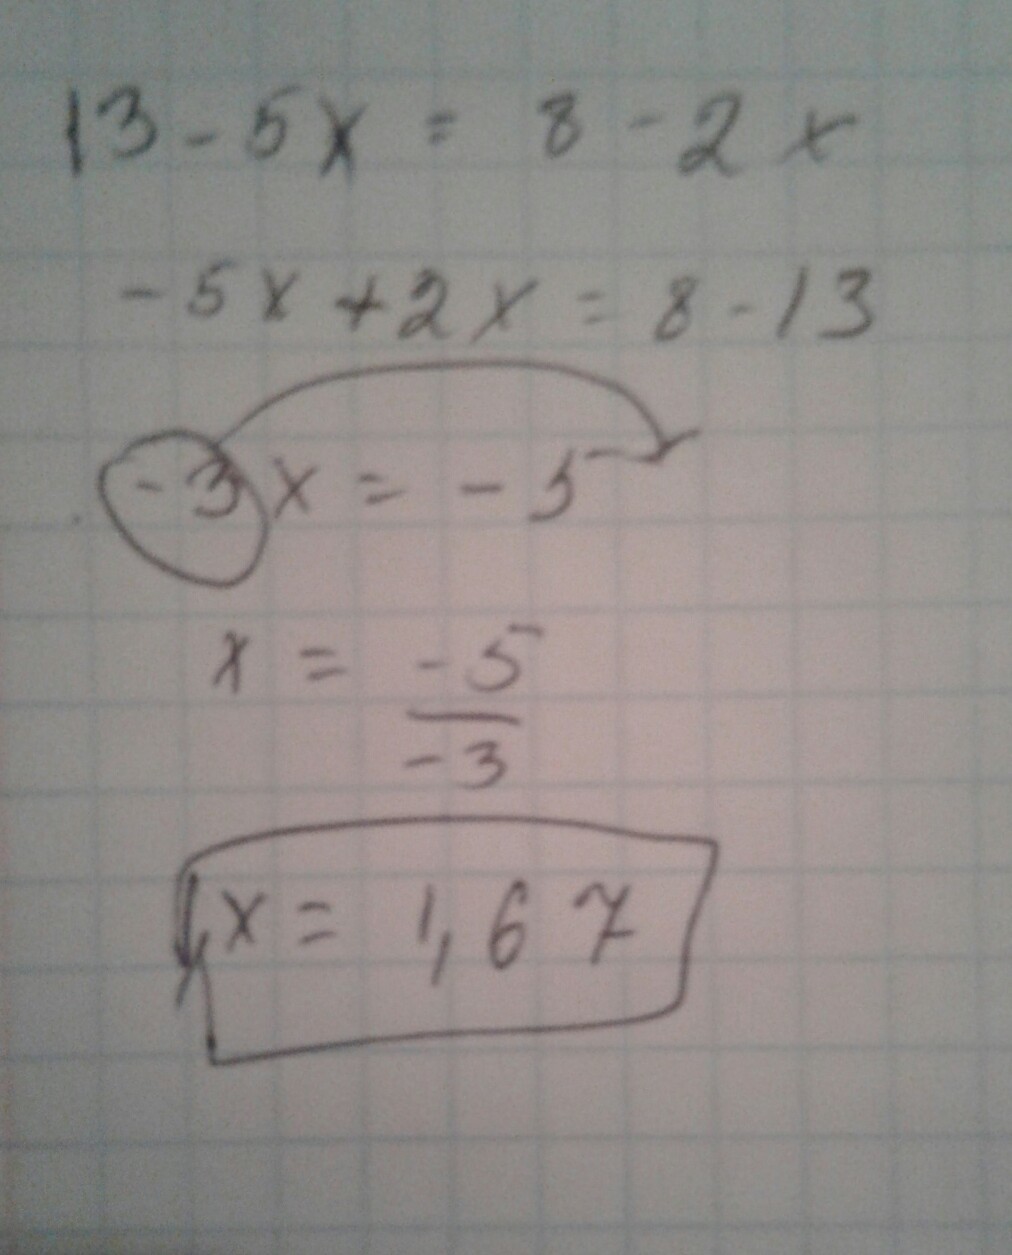 13 - 5x = 8 - 2x
- 5x + 2x = 8 - 13
- 3x = - 5
x = -5
-3
x = 1,67